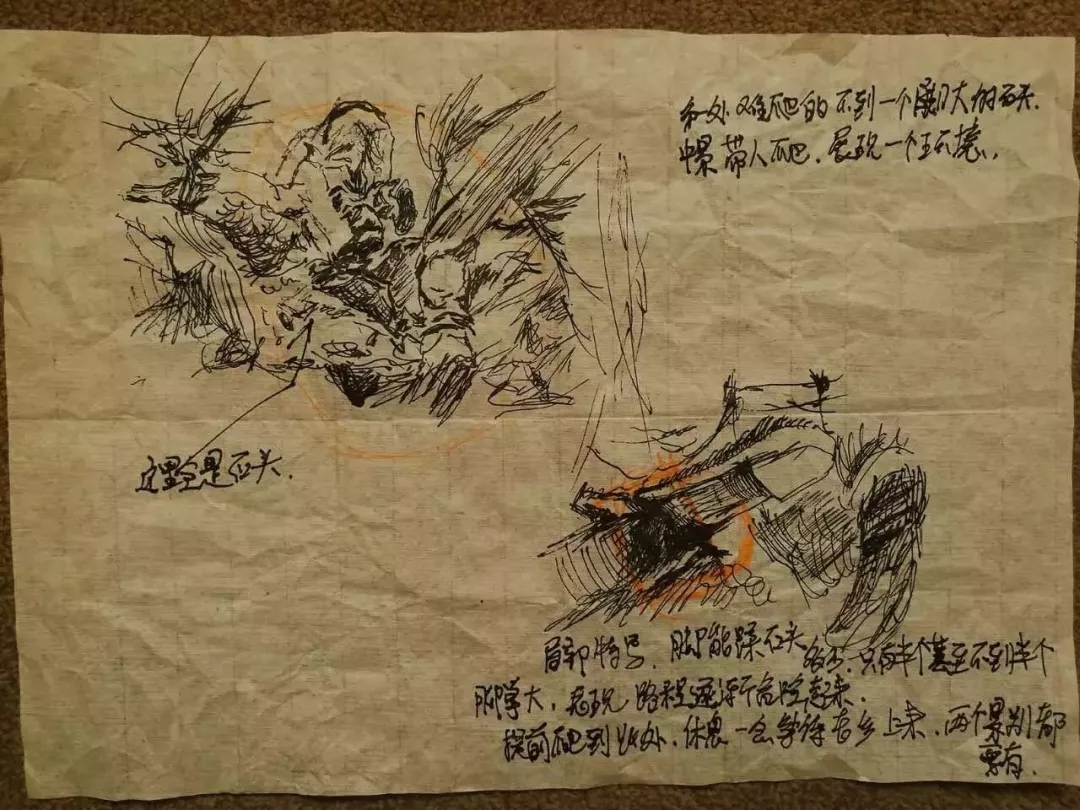 处难爬的不到一个脚大的石头.
中景带人爬.展现一个
这里全是石头.
局部特写.脚能踩石头 只有半个甚至不到半个
脚掌大,表现路程逐渐危险起来.
提前爬到此处.休息一会等待老乡上来.两个景别都
要有.